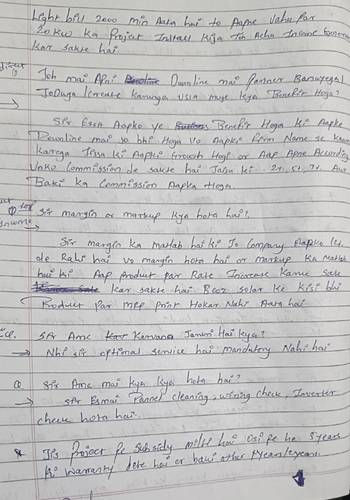 Light bill 2000 min Aata hai to Aapne Vaha par
20KW ka Project Install kiya Toh Acha Income
kar sakte hai
Joh mai Apni Downline mai Partner Banvayega
Jodunga Create karunga usse muje kya Benefit Hoga?
Sir Essa Aapko ye Benefit Hoga ki Aapke
Downline mai jo bhi Hoga vo Aapki firm Name se kaam
karega Jissa ki Aapki Growth Hogi or Aap Apne According
Unko Commission de sakte hai Jaisa ki
Baki ka Commission Aapka Hoga.
Sir margin or markup kya hota hai?
Sir margin ka matlab hai ki Jo Company Aapko
de Rahi hai vo margin hota hai or markup ka matlab
hai ki Aap product par Rate Increase karke sale
kar sakte hai solar ke kisi bhi
Product par MRP print Hokar Nahi Aata hai
Sir Amc karvana Jaruri Hai kya?
→ Nhi sir optimal service hai mandatory Nahi hai
Q Sir Amc mai kya kya hota hai?
→ Sir Esmai Pannel cleaning, wiring check, Inverter
check hota hai.
* Jis project pe subsidy milti hai usi pe he 5 years
ki warranty dete hai or baki other